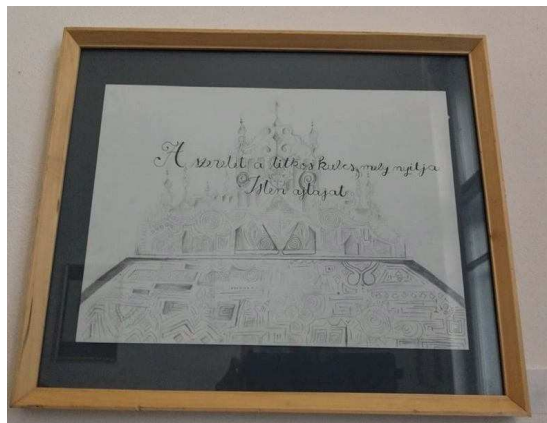 A szeretet a titkos kulcs, mely nyitja
Isten ajtaját